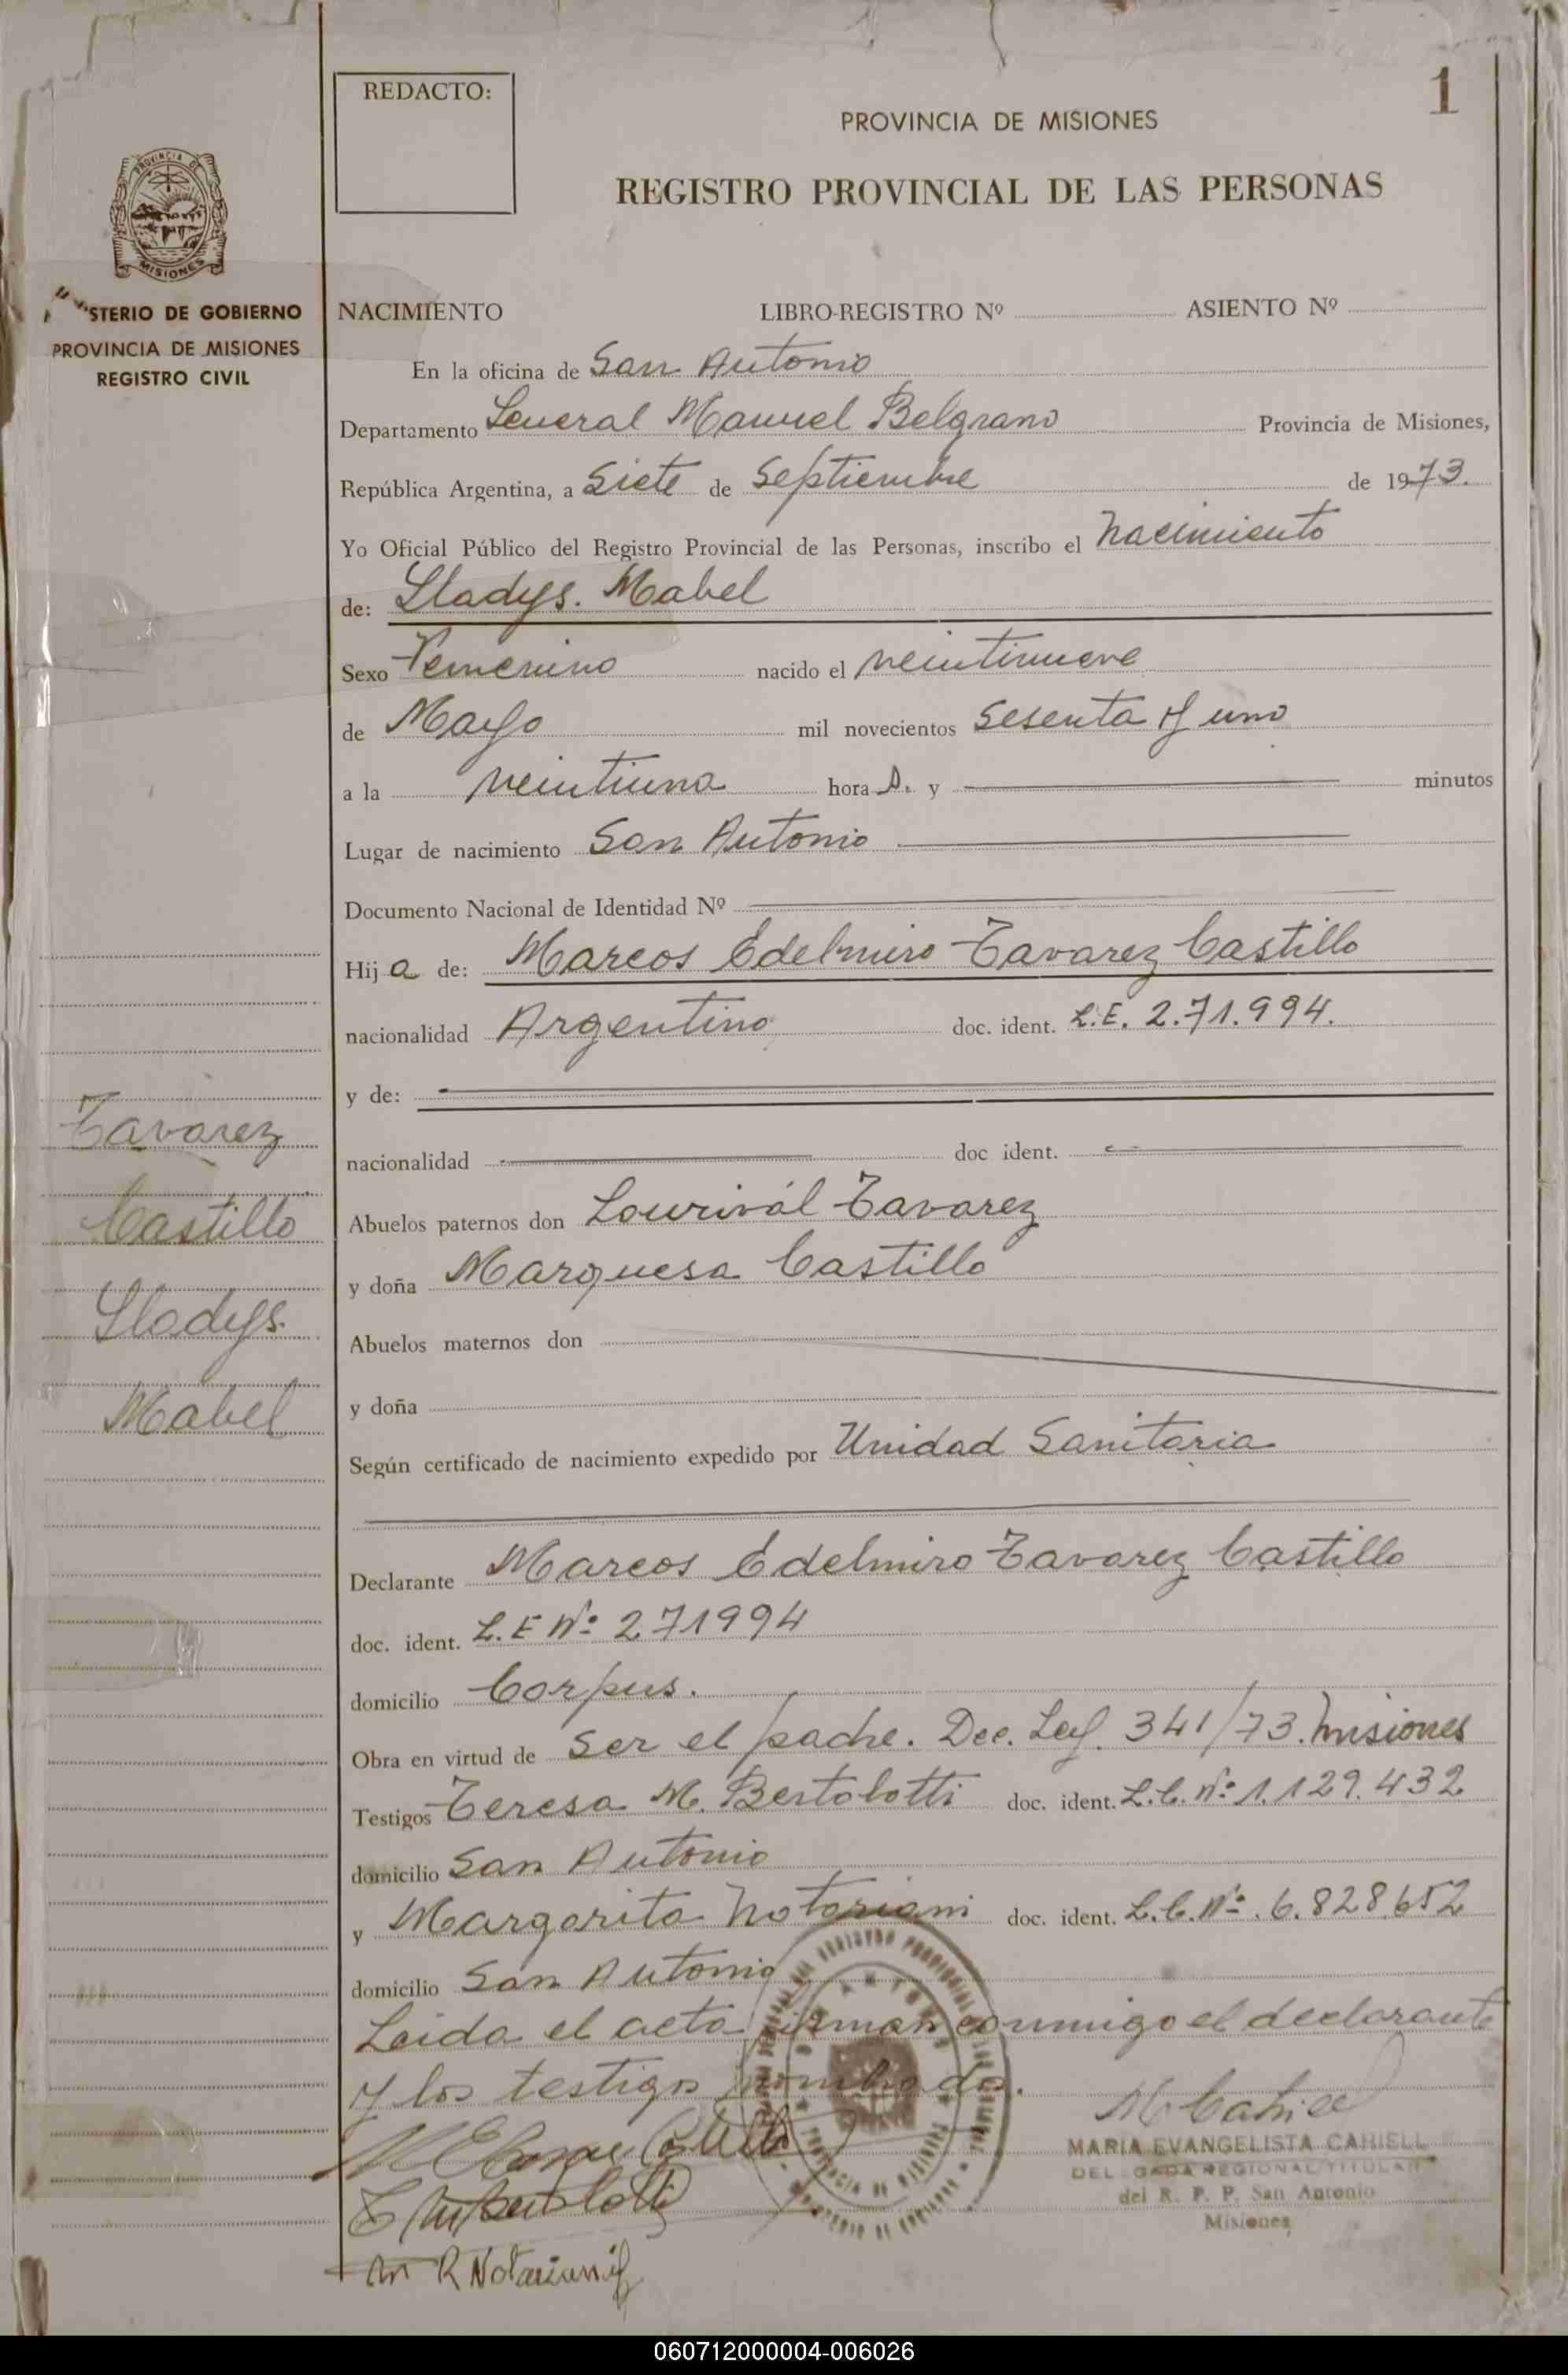 1
REDACTO:
PROVINCIA DE MISIONES
REGISTRO PROVINCIAL DE LAS PERSONAS
PROVINCIA DE
MISIONES
STERIO DE GOBIERNO
PROVINCIA DE MISIONES
REGISTRO CIVIL
NACIMIENTO LIBRO-REGISTRO Nº ASIENTO Nº
En la oficina de San Antonio
Departamento General Manuel Belgrano Provincia de Misiones,
República Argentina, a Siete de Septiembre de 1973.
Yo Oficial Público del Registro Provincial de las Personas, inscribo el Nacimiento
de: Gladys. Mabel
Sexo Femenino nacido el veintinueve
de Mayo mil novecientos Sesenta y uno
a la veintiuna hora s. y minutos
Lugar de nacimiento San Antonio
Documento Nacional de Identidad Nº
Hij a de: Marcos Edelmiro Tavarez Castillo
nacionalidad Argentino doc. ident. L.E. 2.71.994.
y de:
nacionalidad doc ident.
Abuelos paternos don Lourivál Tavarez
y doña Marquesa Castillo
Abuelos maternos don
y doña
Según certificado de nacimiento expedido por Unidad Sanitaria
Declarante Marcos Edelmiro Tavarez Castillo
doc. ident. L.E Nº 271994
domicilio Corpus.
Obra en virtud de ser el padre. Dec. Ley. 341/73. Misiones
Testigos Teresa M. Bertolotti doc. ident. L.C. Nº 1.129.432
domicilio San Antonio
y Margarita Notariani doc. ident. L.C. Nº. 6.828.652
domicilio San Antonio
Leida el acta firman conmigo el declarante
y los testigos nombrados.
M Cahiell
MARIA EVANGELISTA CAHIELL
DELEGADA REGIONAL TITULAR
del R. P. P. San Antonio
Misiones
R Notariani
Tavarez
Castillo
Gladys.
Mabel
060712000004-006026